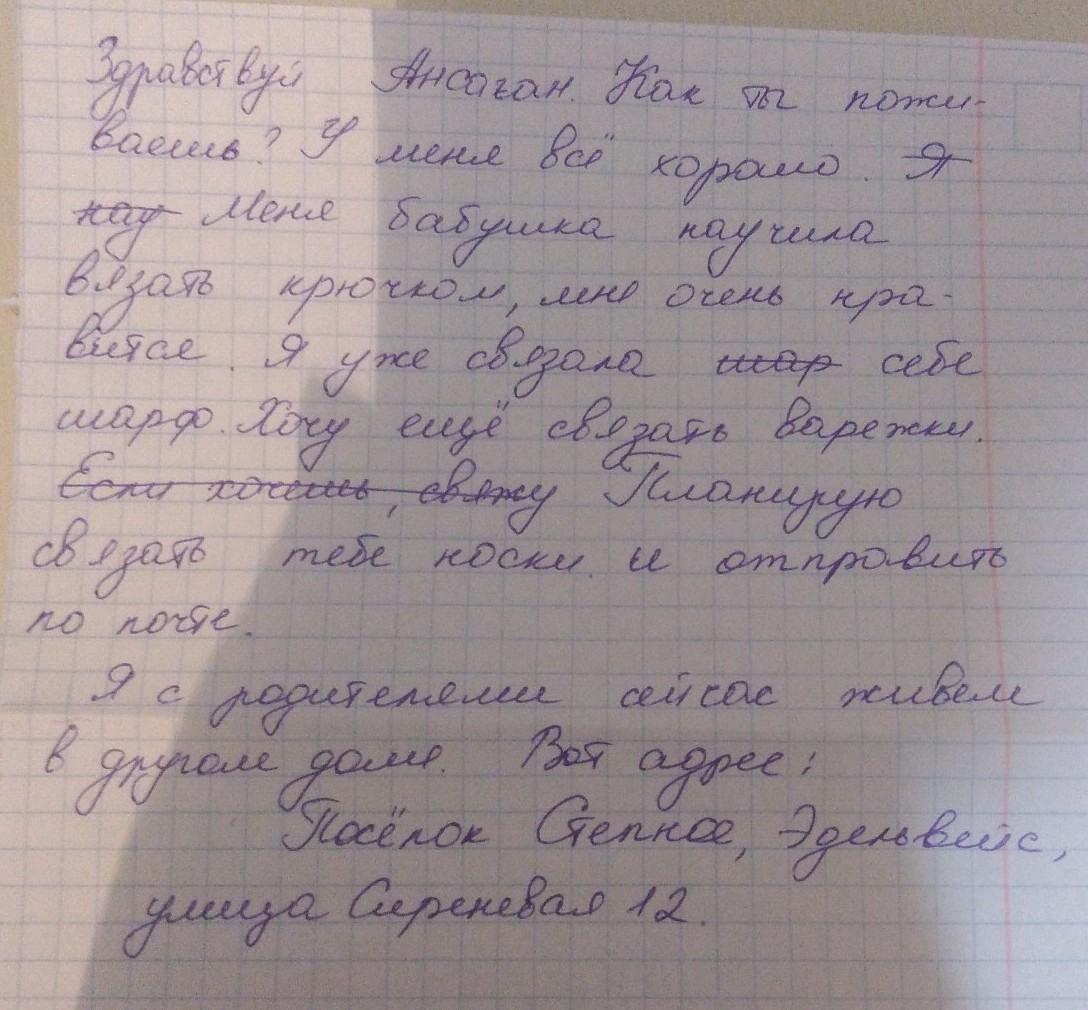 Здравствуй Ансаган. Как ты пожи-
ваешь? У меня всё хорошо. Я
нау Меня бабушка научила
вязать крючком, мне очень нра-
вится. Я уже связала шар себе
шарф. Хочу ещё связать варежки.
Если хочешь, свяжу Планирую
связать тебе носки и отправить
по почте.
Я с родителями сейчас живем
в другом доме. Вот адрес:
Посёлок Степное, Эдельвейс,
улица Сиреневая 12.